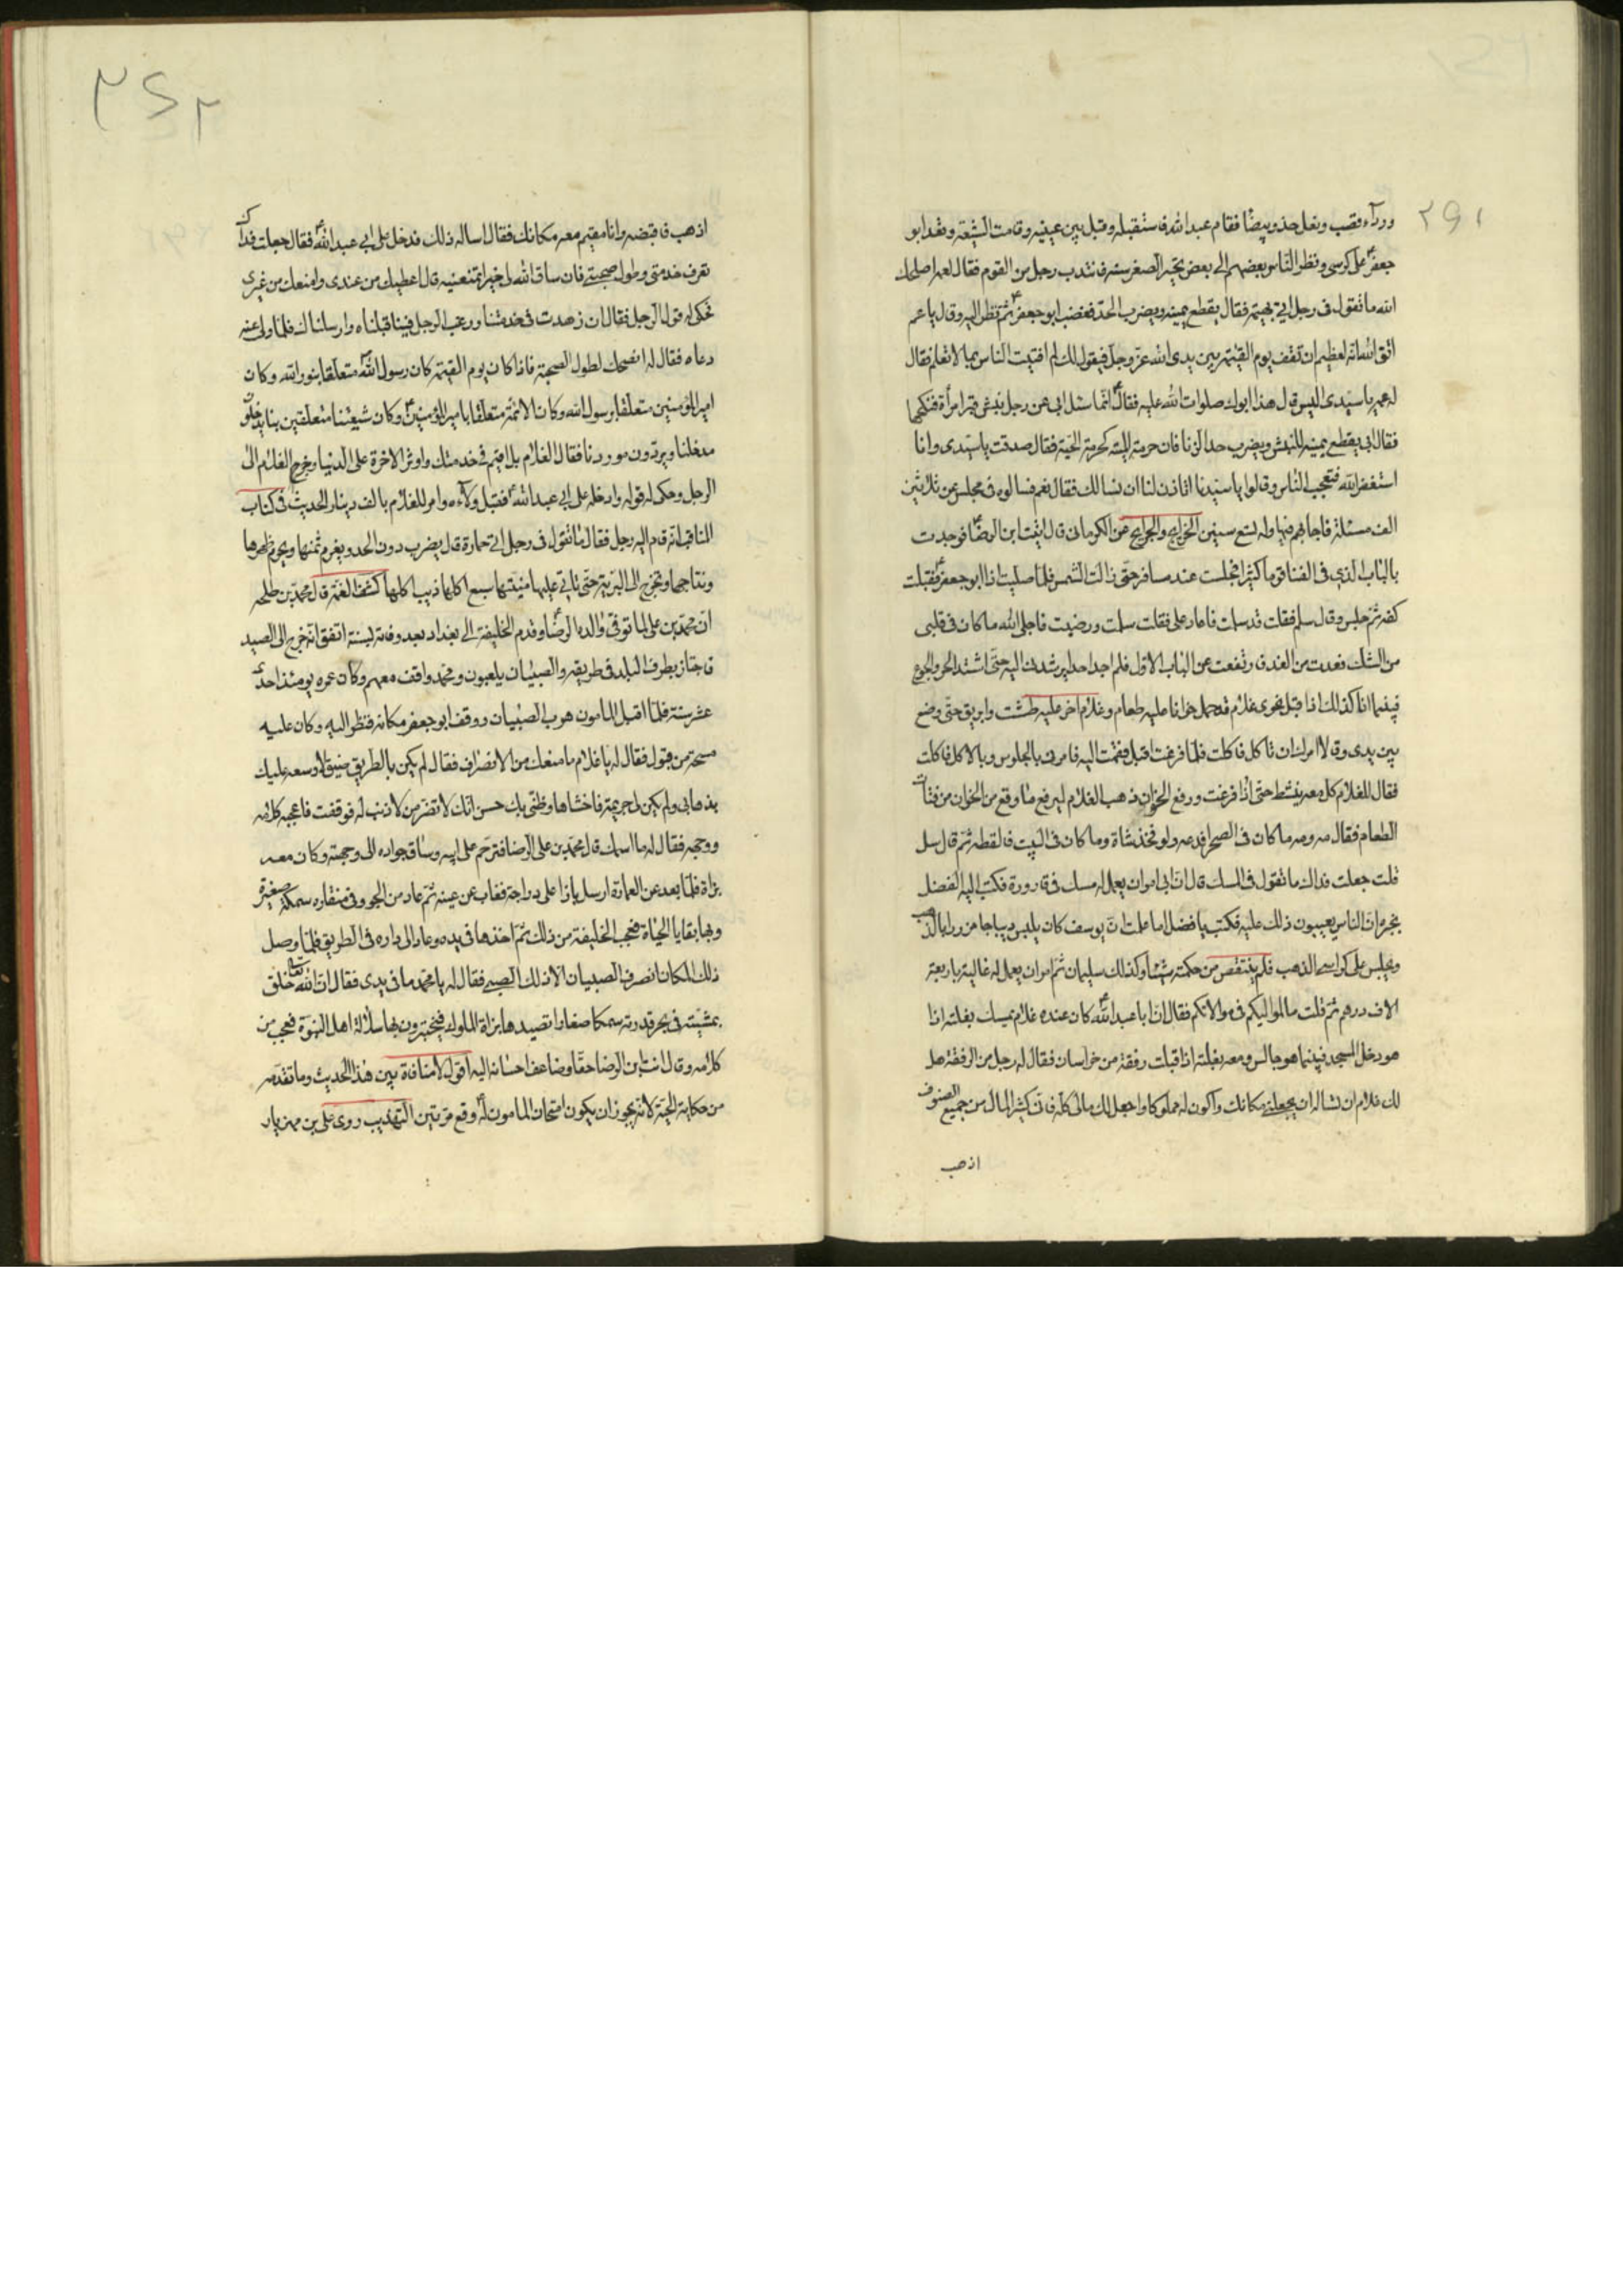 ٢٩١
ورداء قصب ونعل حذو بيضا فقام عبد الله فاستقبله وقبل بين عينيه وقامت الشيعة وقعد ابو
جعفر ع على كرسي ونظر الناس بعضهم الى بعض تحيرا لصغر سنه فانتدب رجل من القوم فقال لعمه اصلحك
الله ما تقول في رجل اتى بهيمة فقال يقطع يمينه ويضرب الحد فغضب ابو جعفر ع ثم نظر اليه وقال يا عم
اتق الله انه لعظيم ان تقف يوم القيمة بين يدى الله عز وجل فيقول لك لم افتيت الناس بما لا تعلم فقال
له عمه يا سيدى اليس قال هذا ابوك صلوات الله عليه فقال ع انما سئل ابى عن رجل نبش قبر امرأة فنكحها
فقال ابى يقطع يمينه للنبش ويضرب حد الزنا فان حرمة الميتة كحرمة الحية فقال صدقت يا سيدى وانا
استغفر الله فتعجب الناس وقالوا يا سيدنا اتاذن لنا ان نسالك فقال نعم فسالوه في مجلس عن ثلاثين
الف مسئلة فاجابهم فيها وله تسع سنين الخرايج والجرايح عن الكرمانى قال اتيت ابن الرضا ع فوجدت
بالباب الذي في الفناء قوما كثيرا فجلست عند مسافر حتى زالت الشمس فلما صليت اذا ابو جعفر ع فقبلت
كفه ثم جلس وقال سلم فقلت قد سلمت فاعاد على فقلت سلمت ورضيت فاجلى الله ما كان في قلبى
من الشك فعدت من الغد فارتفعت عن الباب الاول فلم اجد احدا يرشدنى اليه حتى اشتد الحر والجوع
فبينما انا كذلك اذ اقبل نحوى غلام قد حمل خوانا عليه طعام وغلام اخر عليه طشت وابريق حتى وضع
بين يدى وقالا امرك ان تاكل فاكلت فلما فرغت اقبل فقمت اليه فامرنى بالجلوس وبالاكل فاكلت
فقال للغلام كل معه ينشط حتى اذا فرغت ورفع الخوان ذهب الغلام ليرفع ما وقع من الخوان من فتات
الطعام فقال مه ومه ما كان في الصحرا فدعه ولو فخذ شاة وما كان في البيت فالقطه ثم قال سل
قلت جعلت فداك ما تقول في المسك قال ان ابى امر ان يعمل له مسك في قارورة فكتب اليه الفضل
يخبره ان الناس يعيبون ذلك عليه فكتب يا فضل اما علمت ان يوسف كان يلبس ديباجا مزررا بالذهب
ويجلس على كراسى الذهب فلم ينتقص من حكمته شيئا وكذلك سليمان ثم امر ان يعمل له غالية باربعة
الاف درهم ثم قلت ما لمواليكم في موالاتكم فقال ان ابا عبد الله ع كان عنده غلام يمسك بغلته اذا
هو دخل المسجد فبينما هو جالس ومعه بغلته اذ اقبلت رفقة من خراسان فقال له رجل من الرفقة هل
لك غلام ان تساله ان يجعلنى مكانك واكون له مملوكا واجعل لك مالى كله فانى كثير المال من جميع الصنوف
اذهب
اذهب فاقبضه وانا مقيم معه مكانك فقال اساله ذلك فدخل على ابى عبد الله ع فقال جعلت فداك
تعرف خدمتى وطول صحبتى فان ساق الله لى خيرا تمنعنيه قال اعطيك من عندى وامنعك من غيرى
فحكى له قول الرجل فقال ان زهدت في خدمتنا ورغب الرجل فينا قبلناه وارسلناك فلما ولى عنه
دعاه فقال له انصحك لطول الصحبة فاذا كان يوم القيمة كان رسول الله متعلقا بنور الله وكان
امير المؤمنين متعلقا برسول الله وكان الائمة متعلقا بامير المؤمنين ع وكان شيعتنا متعلقين بنا يدخلون
مدخلنا ويردون موردنا فقال الغلام بل اقيم في خدمتك واوثر الاخرة على الدنيا وخرج الغلام الى
الرجل وحكى له قوله وادخله على ابى عبد الله ع فقبل ولاءه وامر للغلام بالف دينار الحديث في كتاب
المناقب انه قام اليه رجل فقال ما تقول في رجل اتى حمارة قال يضرب دون الحد ويغرم ثمنها ويحرم ظهرها
ونتاجها وتخرج الى البرية حتى تاتى عليها منيتها سبع اكلها ذيب اكلها كشف الغمة قال محمد بن طلحه
ان محمد بن على لما توفى والده الرضا ع وقدم الخليفة الى بغداد بعد وفاته بسنة اتفق انه خرج الى الصيد
فاجتاز بطرف البلد في طريقه والصبيان يلعبون ومحمد واقف معهم وكان عمره يومئذ احدى
عشر سنة فلما اقبل المامون هرب الصبيان ووقف ابو جعفر مكانه فنظر اليه وكان عليه
مسحة من قبول فقال له يا غلام ما منعك من الانصراف فقال لم يكن بالطريق ضيق لاوسعه عليك
بذهابى ولم يكن لى جريمة فاخشاها وظنى بك حسن انك لا تضر من لا ذنب له فوقفت فاعجبه كلامه
ووجهه فقال له ما اسمك قال محمد بن على الرضا فترحم على ابيه وساق جواده الى وجهته وكان معه
بزاة فلما بعد عن العمارة ارسل بازا على دراجة فغاب عن عينه ثم عاد من الجو وفى منقاره سمكة صغيرة
وبها بقايا الحياة فعجب الخليفة من ذلك ثم اخذها في يده وعاد الى داره في الطريق فلما وصل
ذلك المكان انصرف الصبيان الا ذلك الصبى فقال له يا محمد ما في يدى فقال ان الله تعالى خلق
بمشيته في بحر قدرته سمكا صغارا تصيدها بزاة الملوك فيختبرون بها سلالة اهل النبوة فعجب من
كلامه وقال انت ابن الرضا حقا وضاعف احسانه اليه اقول لا منافاة بين هذا الحديث وما تقدمه
من حكاية الحية لانه يجوز ان يكون امتحان المامون له ع وقع مرتين التهذيب روى على بن مهزيار